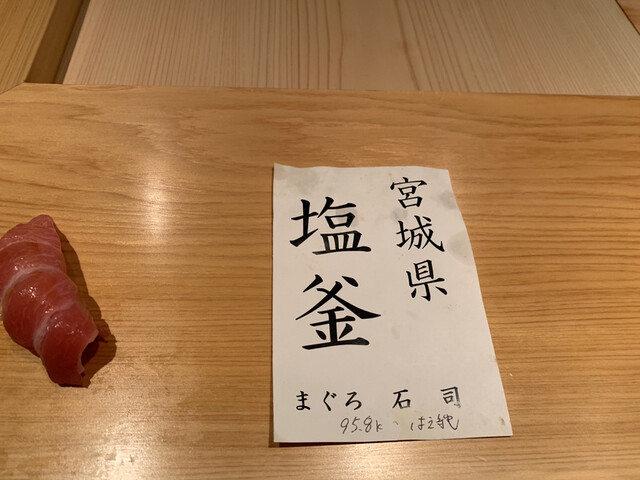 宮城県
塩釜
まぐろ 石司
95.8k はえ縄